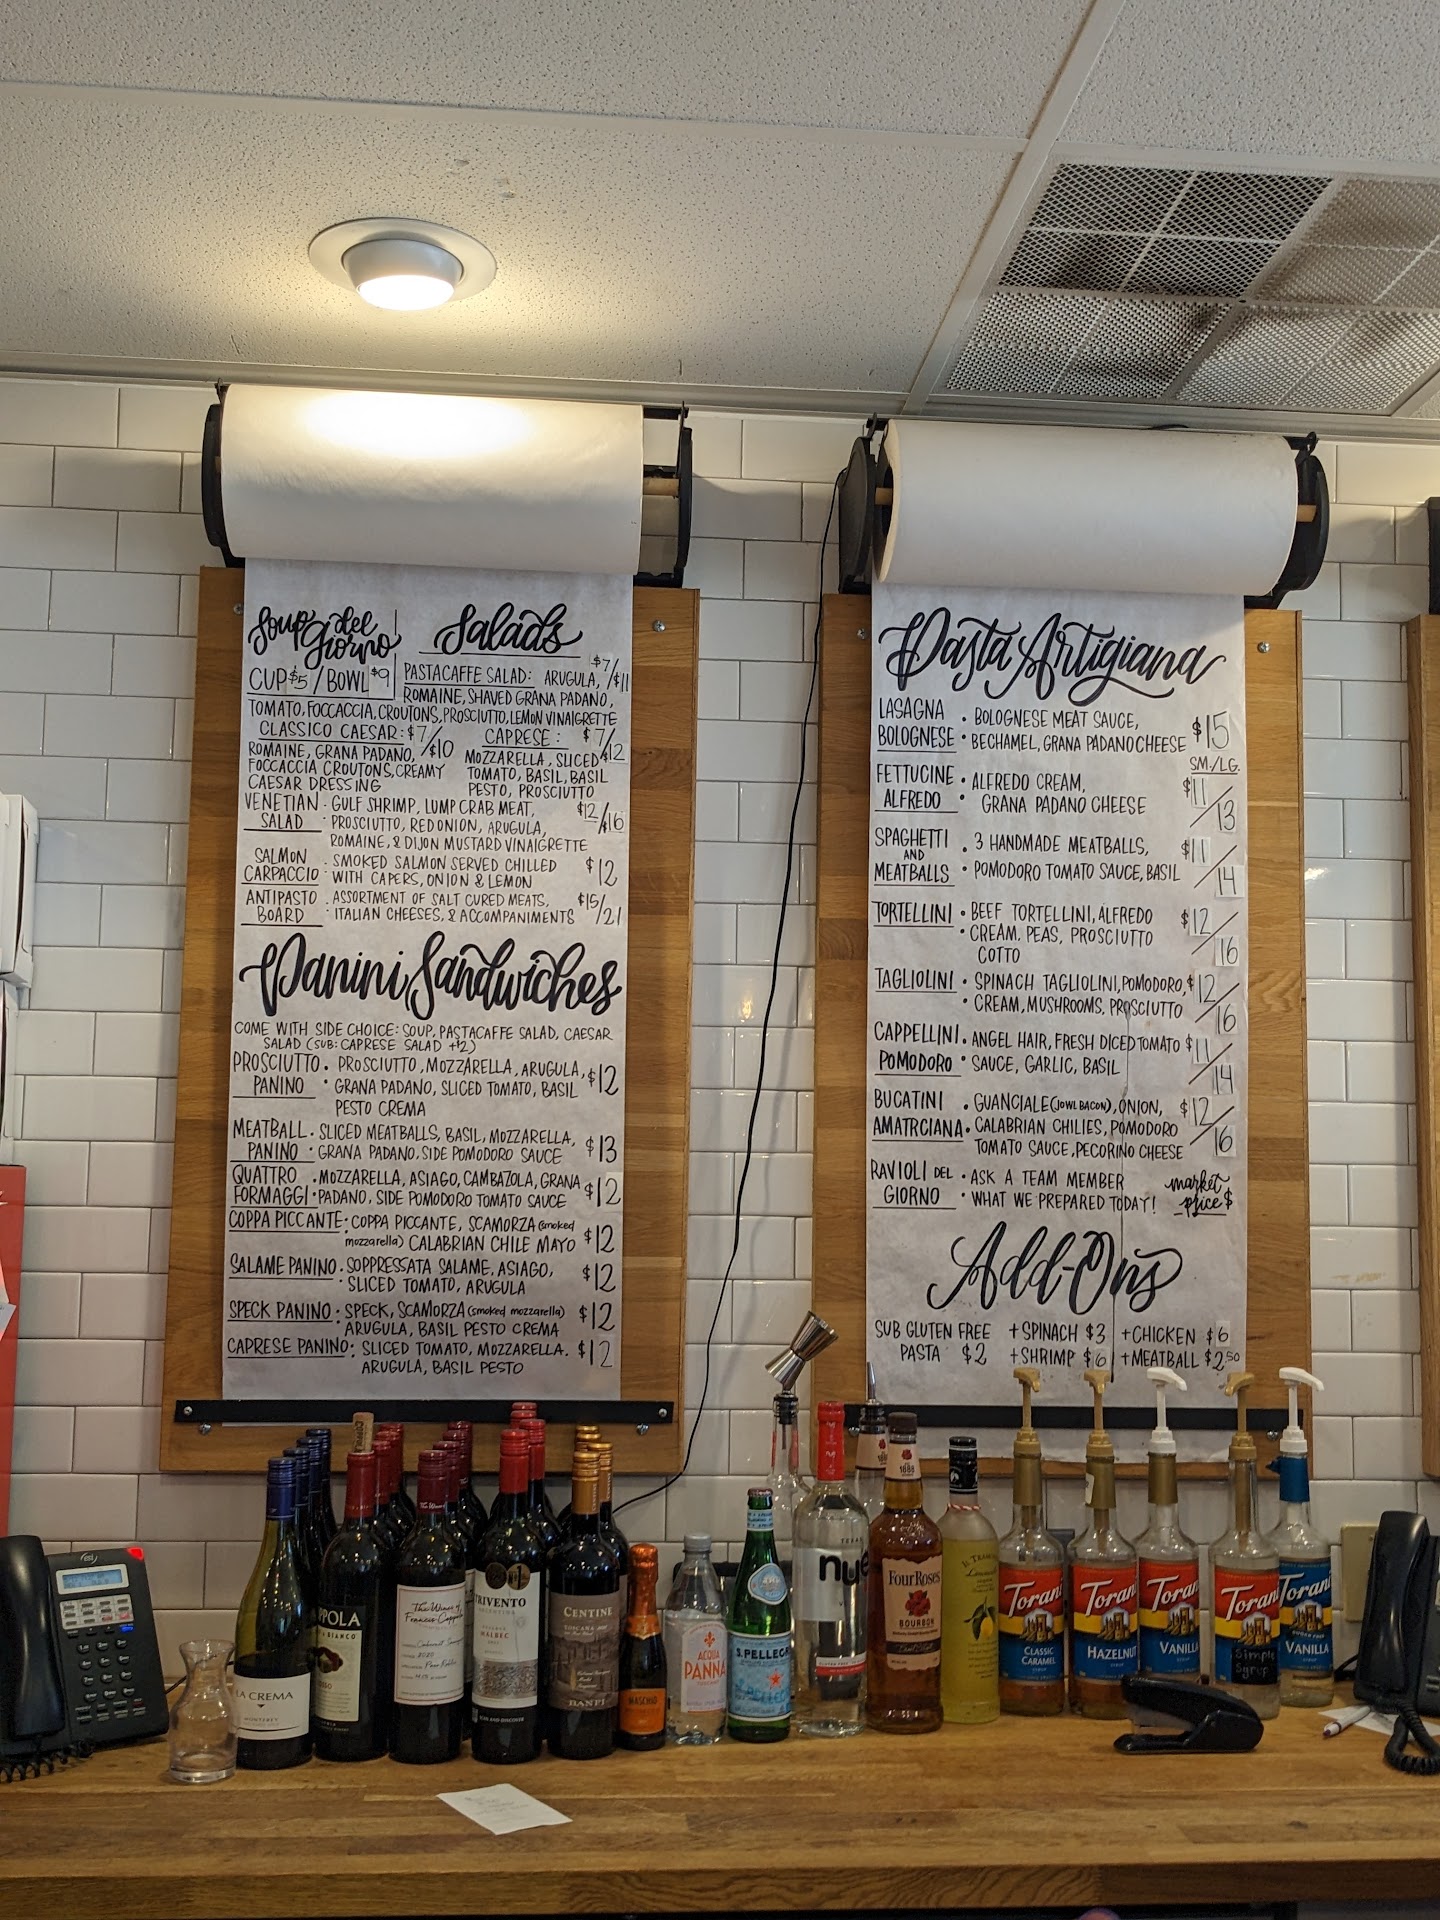 Soup del
Giorno
CUP $5 / BOWL $9
Salads
PASTACAFFE SALAD: ARUGULA, $7/$11
ROMAINE, SHAVED GRANA PADANO,
TOMATO, FOCCACCIA CROUTONS, PROSCIUTTO, LEMON VINAIGRETTE
CLASSICO CAESAR: $7/$10
ROMAINE, GRANA PADANO,
FOCCACCIA CROUTONS, CREAMY
CAESAR DRESSING
CAPRESE: $7/$12
MOZZARELLA, SLICED
TOMATO, BASIL, BASIL
PESTO, PROSCIUTTO
VENETIAN • GULF SHRIMP, LUMP CRAB MEAT, $12/$16
SALAD • PROSCIUTTO, RED ONION, ARUGULA,
ROMAINE, & DIJON MUSTARD VINAIGRETTE
SALMON • SMOKED SALMON SERVED CHILLED $12
CARPACCIO • WITH CAPERS, ONION & LEMON
ANTIPASTO • ASSORTMENT OF SALT CURED MEATS, $15/21
BOARD • ITALIAN CHEESES, & ACCOMPANIMENTS
Panini Sandwiches
COME WITH SIDE CHOICE: SOUP, PASTACAFFE SALAD, CAESAR
SALAD (SUB: CAPRESE SALAD +$2)
PROSCIUTTO • PROSCIUTTO, MOZZARELLA, ARUGULA, $12
PANINO • GRANA PADANO, SLICED TOMATO, BASIL
PESTO CREMA
MEATBALL • SLICED MEATBALLS, BASIL, MOZZARELLA, $13
PANINO • GRANA PADANO, SIDE POMODORO SAUCE
QUATTRO • MOZZARELLA, ASIAGO, CAMBAZOLA, GRANA $12
FORMAGGI • PADANO, SIDE POMODORO TOMATO SAUCE
COPPA PICCANTE: COPPA PICCANTE, SCAMORZA (smoked $12
mozzarella) CALABRIAN CHILE MAYO
SALAME PANINO • SOPPRESSATA SALAME, ASIAGO, $12
• SLICED TOMATO, ARUGULA
SPECK PANINO: SPECK, SCAMORZA (smoked mozzarella) $12
ARUGULA, BASIL PESTO CREMA
CAPRESE PANINO: SLICED TOMATO, MOZZARELLA. $12
ARUGULA, BASIL PESTO
Pasta Artigiana
LASAGNA • BOLOGNESE MEAT SAUCE, $15
BOLOGNESE • BECHAMEL, GRANA PADANO CHEESE
SM./LG.
FETTUCINE • ALFREDO CREAM, $11/13
ALFREDO • GRANA PADANO CHEESE
SPAGHETTI • 3 HANDMADE MEATBALLS, $11/14
AND
MEATBALLS • POMODORO TOMATO SAUCE, BASIL
TORTELLINI • BEEF TORTELLINI, ALFREDO $12/16
• CREAM. PEAS, PROSCIUTTO
COTTO
TAGLIOLINI • SPINACH TAGLIOLINI, POMODORO, $12/16
• CREAM, MUSHROOMS, PROSCIUTTO
CAPPELLINI • ANGEL HAIR, FRESH DICED TOMATO $11/14
POMODORO • SAUCE, GARLIC, BASIL
BUCATINI • GUANCIALE (JOWL BACON), ONION, $12/16
AMATRCIANA • CALABRIAN CHILIES, POMODORO
TOMATO SAUCE, PECORINO CHEESE
RAVIOLI DEL • ASK A TEAM MEMBER market
GIORNO • WHAT WE PREPARED TODAY! price $
Add-Ons
SUB GLUTEN FREE + SPINACH $3 + CHICKEN $6
PASTA $2 + SHRIMP $6 + MEATBALL $2.50
LA CREMA
MONTEREY
PPOLA
BIANCO
The Wines of
Francis Coppola
TRIVENTO
MALBEC
CENTINE
TOSCANA
BANFI
MASCHIO
ACQUA
PANNA
S.PELLEGR
TEXAS
nue
1888
Four Roses
BOURBON
Torani
CLASSIC
CARAMEL
Torani
HAZELNUT
Torani
VANILLA
Torani
Simple
Syrup
Torani
SUGAR FREE
VANILLA